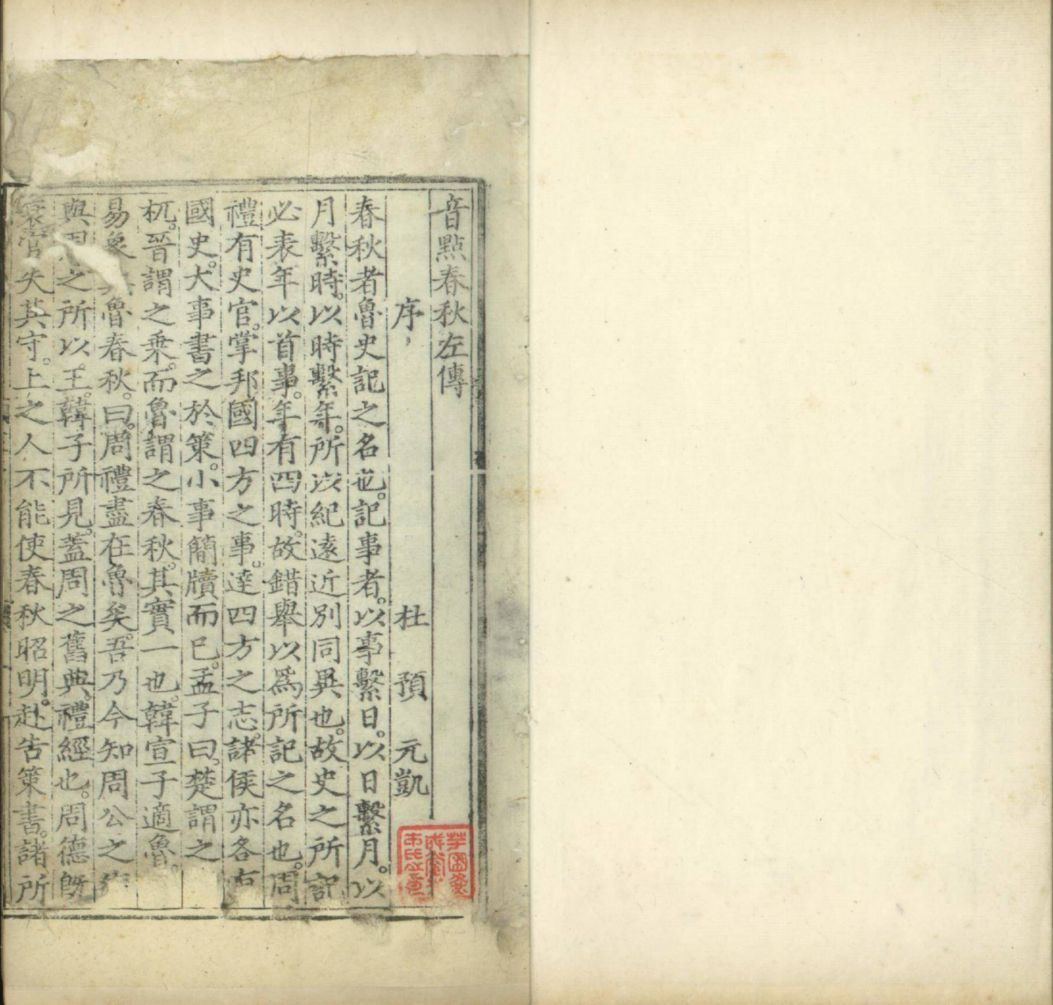 音點春秋左傳
序
杜預元凱
春秋者魯史記之名也。記事者。以事繫日。以日繫月。以
月繫時。以時繫年。所以紀遠近別同異也。故史之所記
必表年以首事。年有四時。故錯舉以爲所記之名也。周
禮有史官。掌邦國四方之事。達四方之志。諸侯亦各有
國史。大事書之於策。小事簡牘而已。孟子曰。楚謂之
杌。晉謂之乘。而魯謂之春秋。其實一也。韓宣子適魯。
易象魯春秋。曰。周禮盡在魯矣。吾乃今知周公之
與周之所以王。韓子所見。蓋周之舊典。禮經也。周德旣
官失其守。上之人不能使春秋昭明。赴告策書。諸所